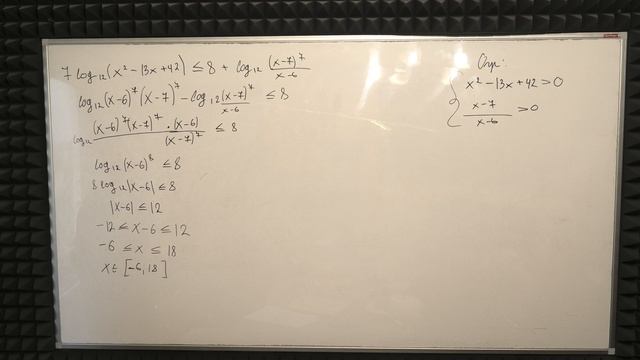 7 log₁₂(x² - 13x + 42) ≤ 8 + log₁₂ (x-7)⁷/(x-6)
log₁₂(x-6)⁷(x-7)⁷ - log₁₂ (x-7)⁷/(x-6) ≤ 8
log₁₂ (x-6)⁷(x-7)⁷ · (x-6)/(x-7)⁷ ≤ 8
log₁₂(x-6)⁸ ≤ 8
8 log₁₂|x-6| ≤ 8
|x-6| ≤ 12
-12 ≤ x-6 ≤ 12
-6 ≤ x ≤ 18
x ∈ [-6; 18]
Опр:
{ x² - 13x + 42 > 0
(x-7)/(x-6) > 0